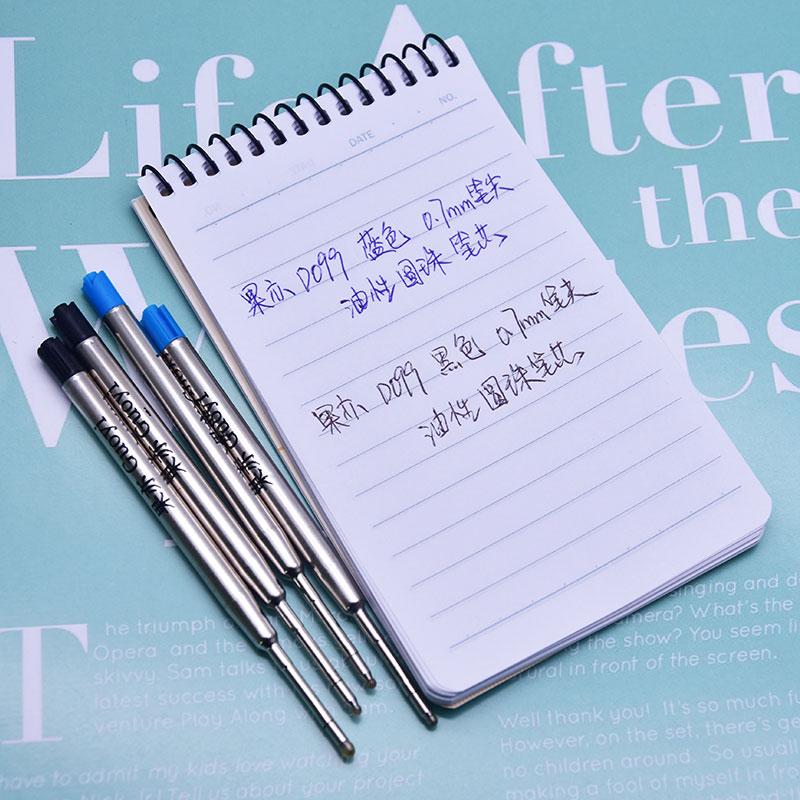 Life After
the
DATE
NO.
果亦 D099 蓝色 0.7mm笔尖
油性圆珠笔芯
果亦 D099 黑色 0.7mm笔尖
油性圆珠笔芯
果亦 Guoyi
果亦 Guoyi
果亦 Guoyi
The triumph
Opera and the
skivvy. Sam talks
latest success with
venture Play Along
have to admit my kids love watching your
Tell us about your project
singing and
camera? What's the
the show? You seem
in front of the screen.
Well thank you! It's so much
However, on the set, there's
no children around. So
making a fool of myself in